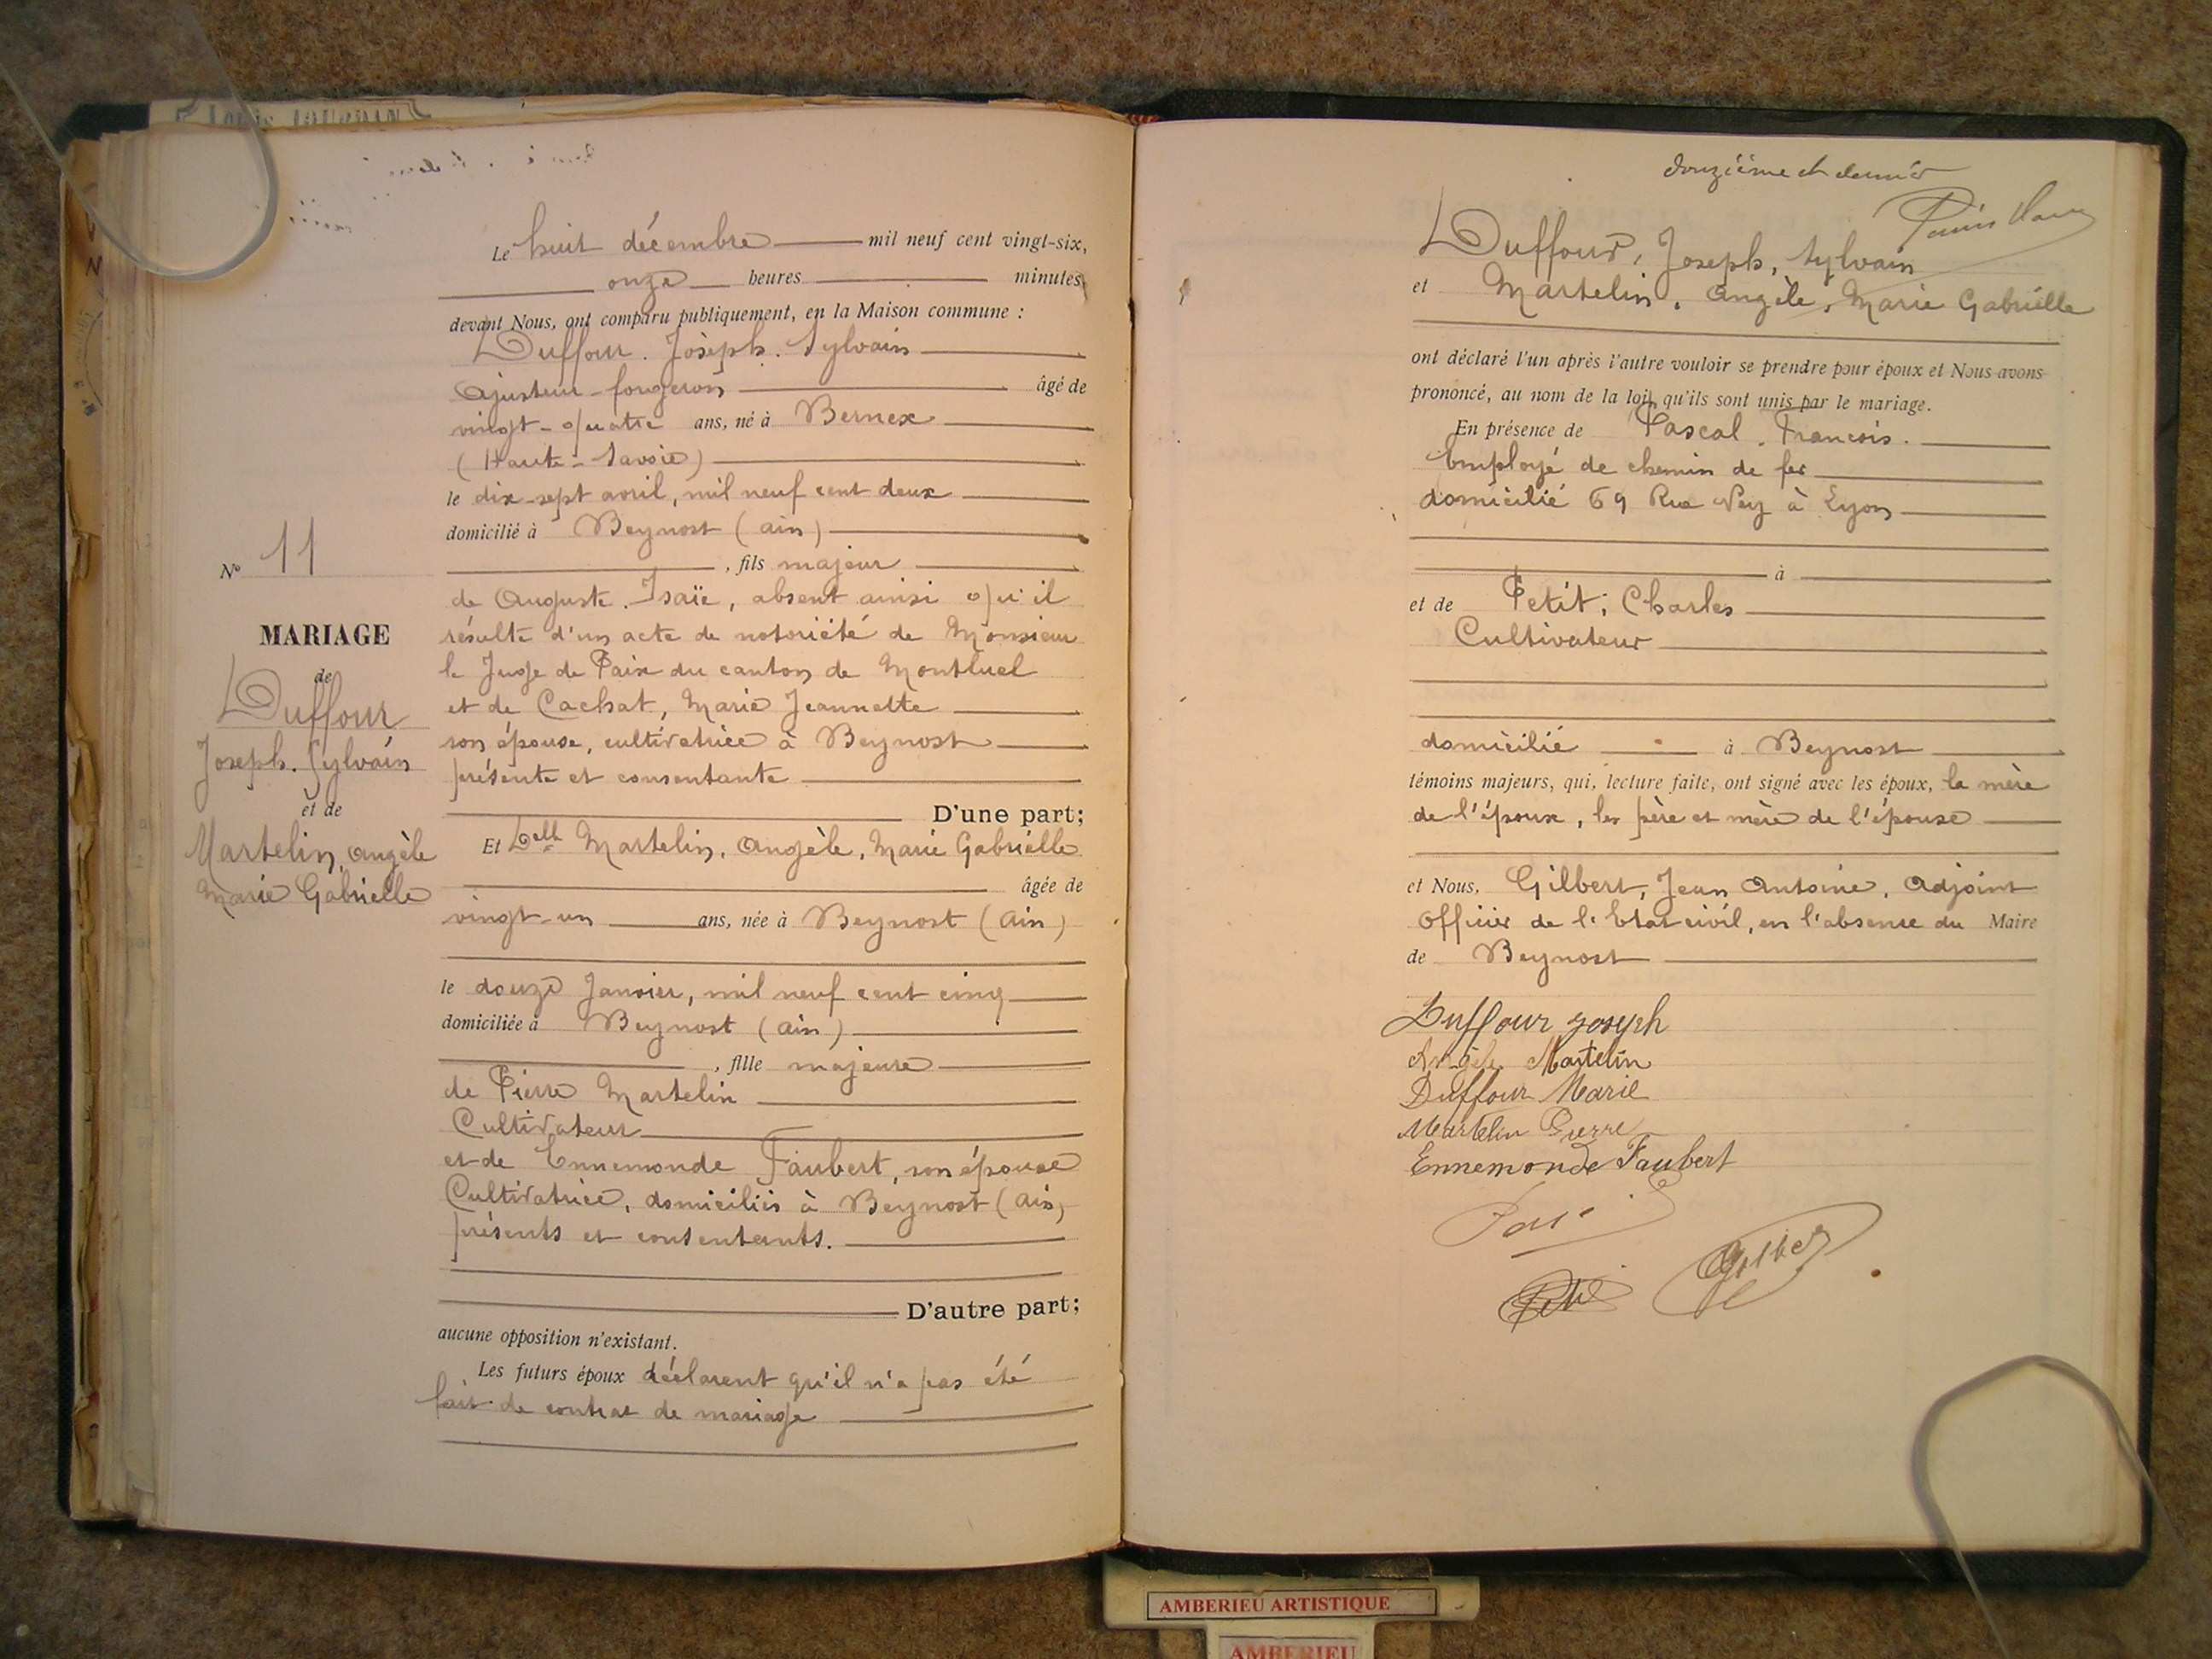 Le huit décembre mil neuf cent vingt-six,
onze heures minutes
devant Nous, ont comparu publiquement, en la Maison commune :
Duffour. Joseph. Sylvain
Ajusteur-forgeron âgé de
vingt-quatre ans, né à Bernex
(Haute-Savoie)
le dix-sept avril, mil neuf cent deux
domicilié à Beynost (Ain)
, fils majeur
de Auguste. Isaïe, absent ainsi qu'il
résulte d'un acte de notoriété de Monsieur
le Juge de Paix du canton de Montluel
et de Cachat, Marie Jeannette
son épouse, cultivatrice à Beynost
présente et consentante
D'une part;
Et Delle Martelin, Angèle, Marie Gabrielle
âgée de
vingt-un ans, née à Beynost (Ain)
le douze Janvier, mil neuf cent cinq
domiciliée à Beynost (Ain)
, fille majeure
de Pierre Martelin
Cultivateur
et de Ennemonde Faubert, son épouse
Cultivatrice, domiciliés à Beynost (Ain)
présents et consentants.
D'autre part;
aucune opposition n'existant.
Les futurs époux déclarent qu'il n'a pas été
fait de contrat de mariage
No 11
MARIAGE
de
Duffour
Joseph. Sylvain
et de
Martelin, Angèle
Marie Gabrielle
douzième et dernier
Duffour, Joseph, Sylvain
et Martelin, Angèle, Marie Gabrielle
ont déclaré l'un après l'autre vouloir se prendre pour époux et Nous avons
prononcé, au nom de la loi, qu'ils sont unis par le mariage.
En présence de Pascal, Francois.
Employé de chemin de fer
domicilié 69 Rue Ney à Lyon
à
et de Petit, Charles
Cultivateur
domicilié à Beynost
témoins majeurs, qui, lecture faite, ont signé avec les époux, la mère
de l'époux, les père et mère de l'épouse
et Nous, Gilbert, Jean Antoine, Adjoint
Officier de l'Etat civil, en l'absence du Maire
de Beynost
Duffour Joseph
Angèle Martelin
Duffour Marie
Martelin Pierre
Ennemonde Faubert
Petit
Gilbert
AMBERIEU ARTISTIQUE
AMBERIEU